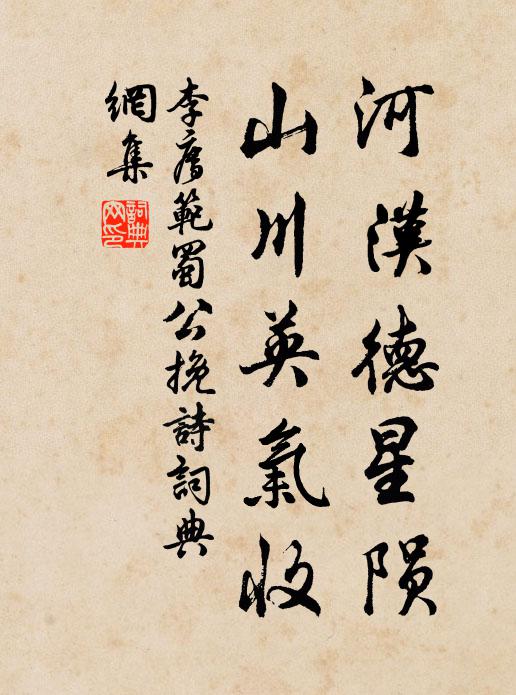 河漢德星隕
山川英氣收
李廌範蜀公挽詩詞典
網集
詞典
网印